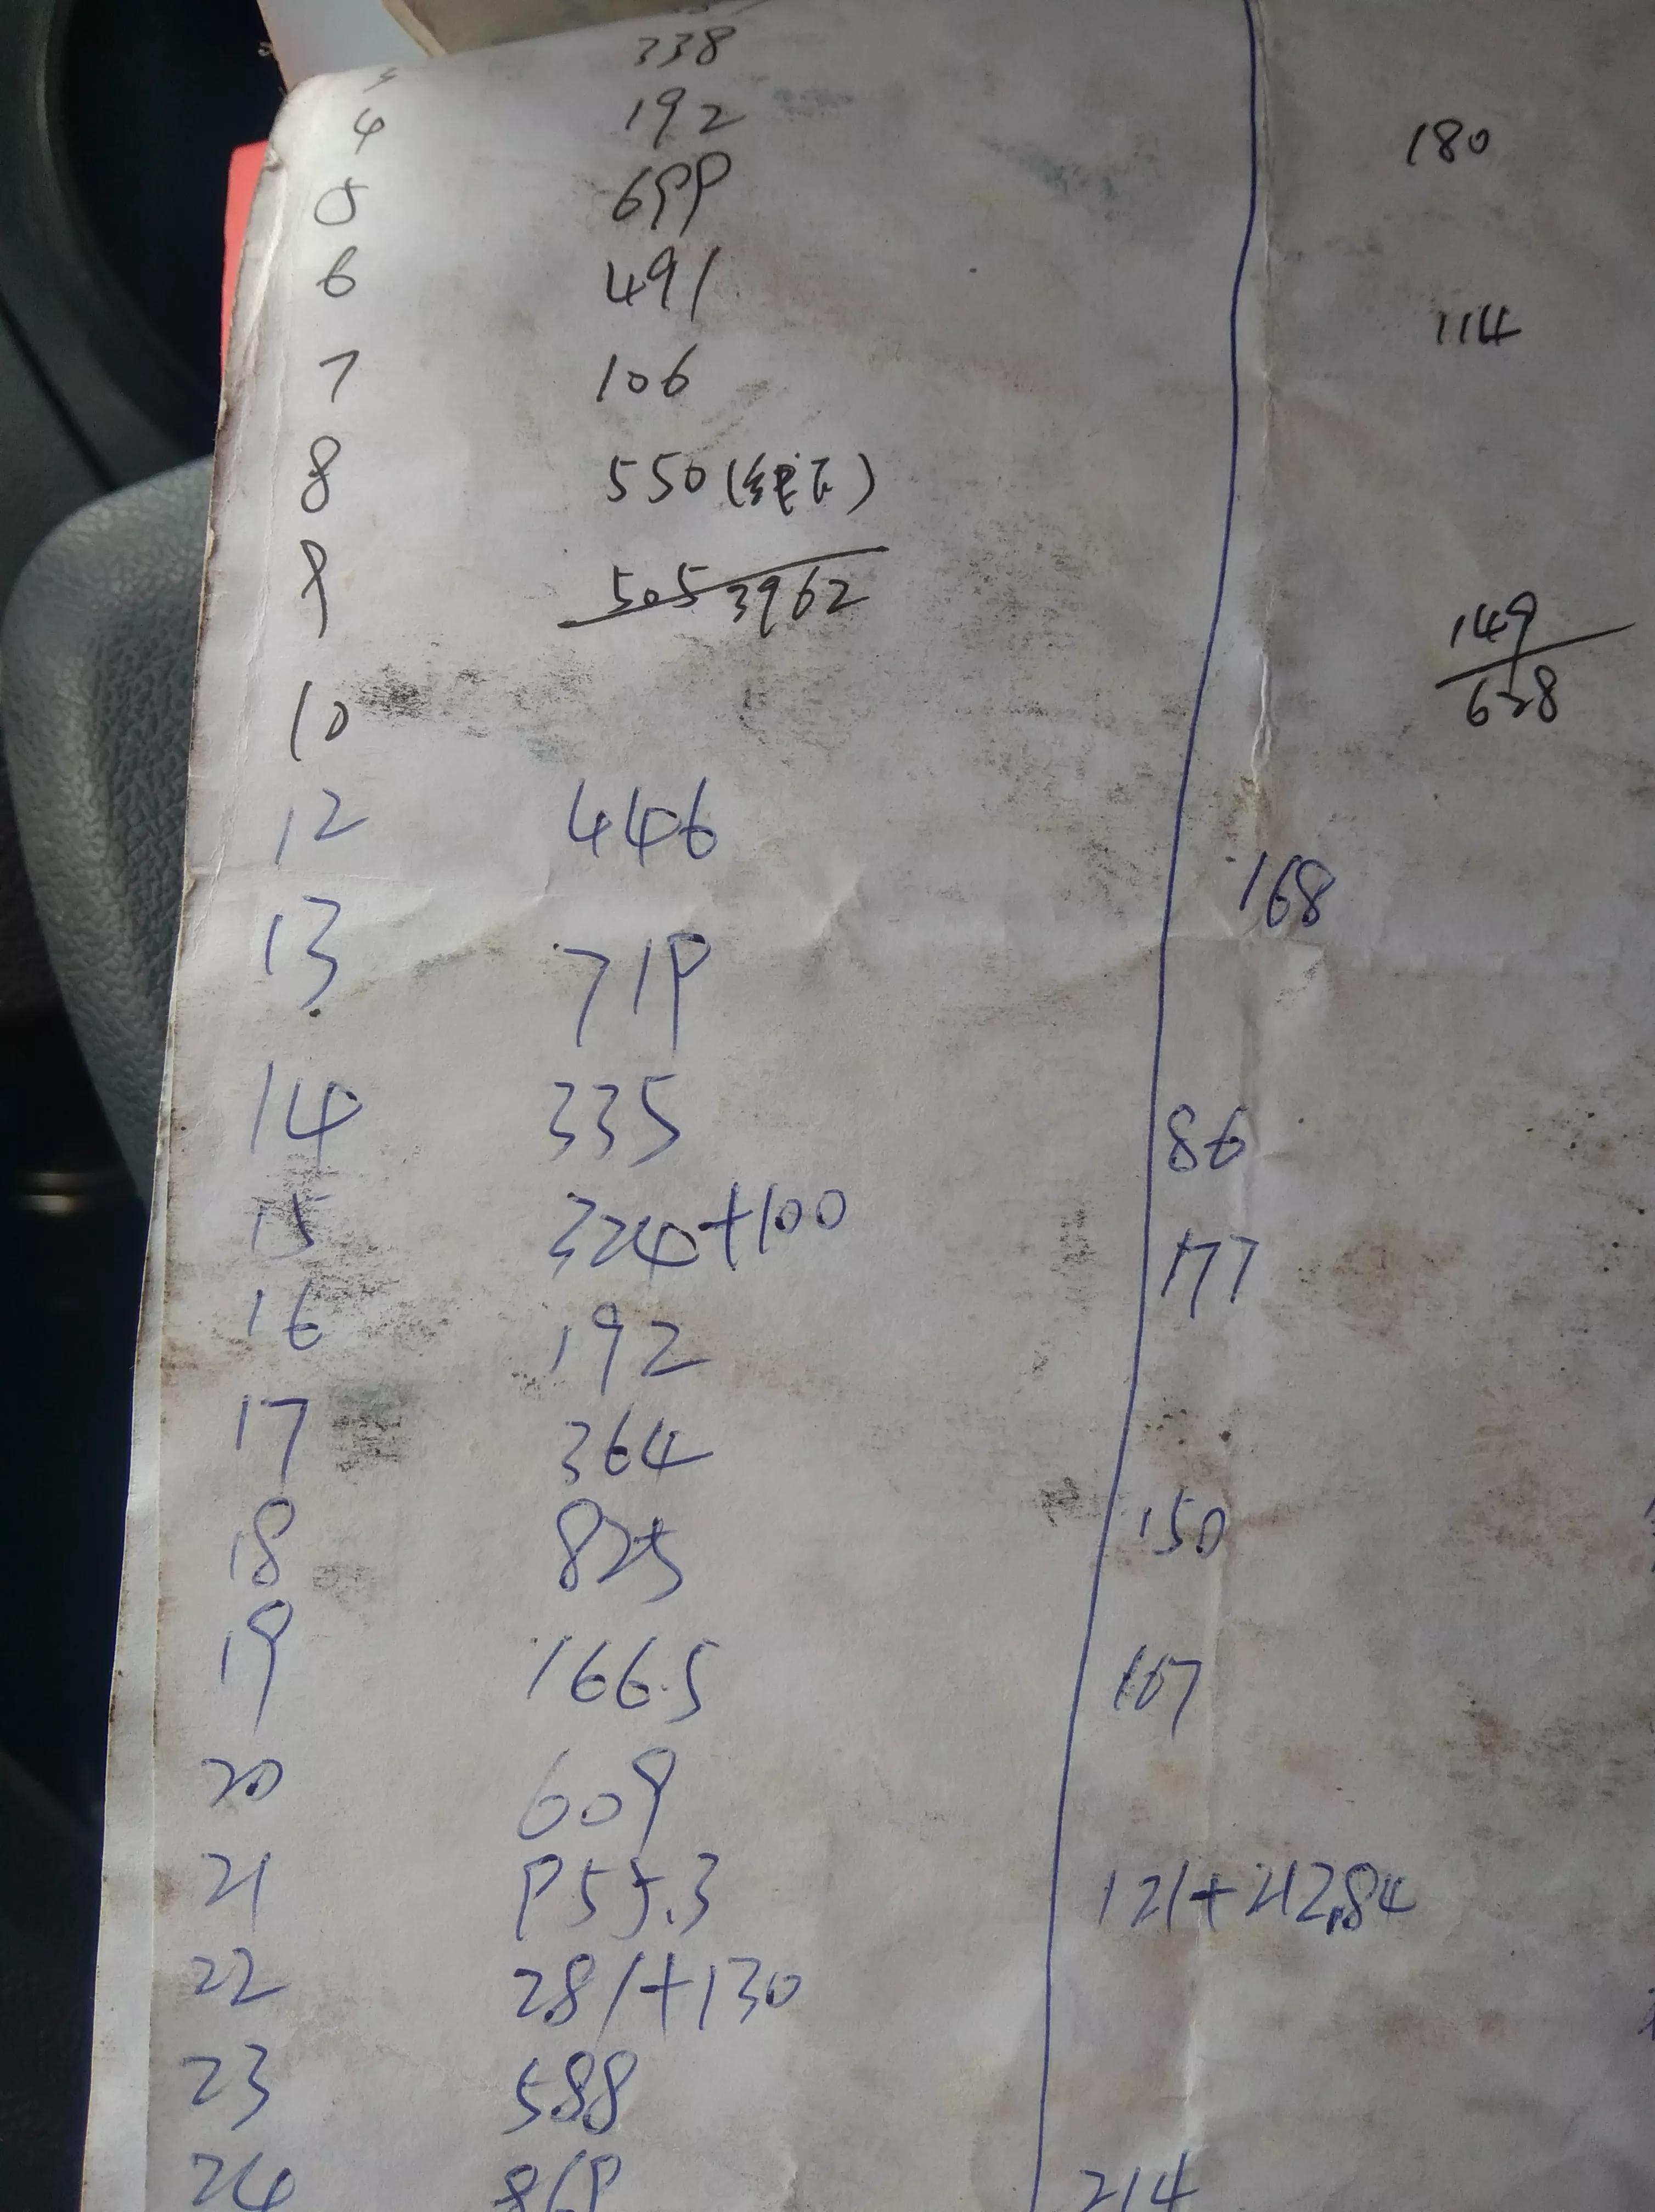 338
4 192 180
5 699
6 491 114
7 106
8 550(线下)
9 505 3962 149
10 628
12 446 168
13 719
14 335 86
15 324+100 177
16 192
17 364
18 825 150
19 166.5 107
20 609
21 955.3 121+212.84
22 281+130
23 588
24 214